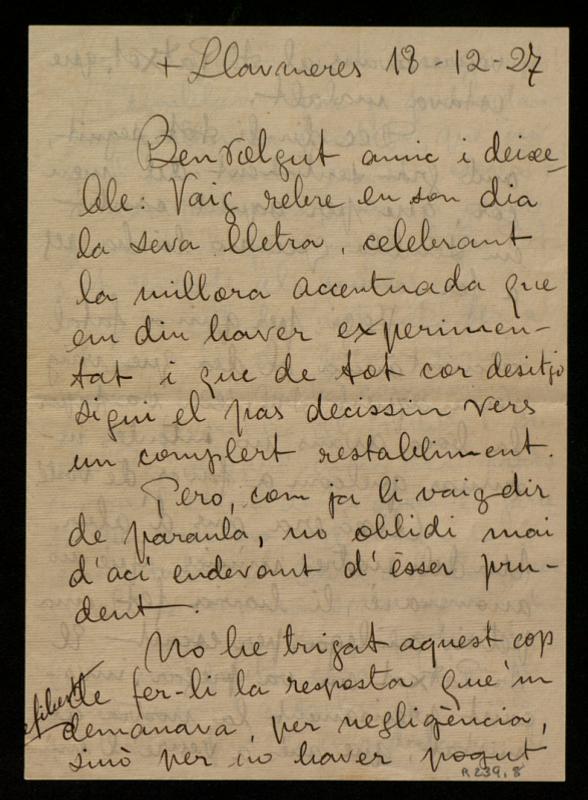 + Llavaneres 18-12-27
Benvolgut amic i deixe-
ble: Vaig rebre en son dia
la seva lletra, celebrant
la millora accentuada que
em diu haver experimen-
tat i que de tot cor desitjo
sigui el pas decissiu vers
un complert restabliment.
Pero, com ja li vaig dir
de paraula, no oblidi mai
d'ací endevant d'ésser pru-
dent.
No he trigat aquest cop
de fer-li la resposta que'm
demanava, per negligència,
sinó per no haver pogut
R 239,8